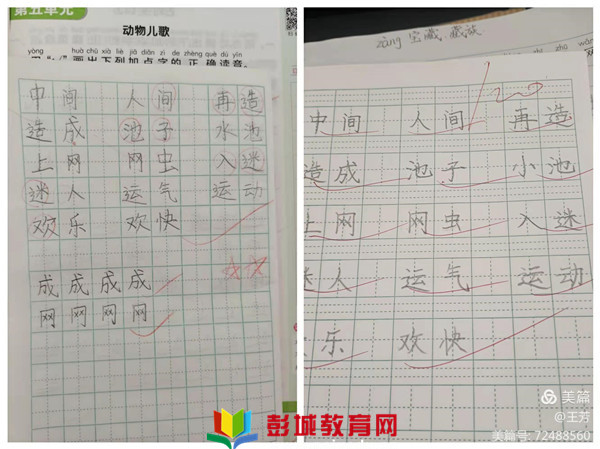 第五单元
动物儿歌
yòng huà chū xià liè jiā diǎn zì de zhèng què dú yīn
画出下列加点字的正确读音。
中间 人间 再造
造成 池子 水池
上网 网虫 入迷
迷人 运气 运动
欢乐 欢快
成成成成
网网网网
zàng 宝藏
中间 人间 再造
造成 池子 小池
上网 网虫 入迷
迷人 运气 运动
乐 欢快
彭城教育网
美篇
@王芳
美篇号: 72488560